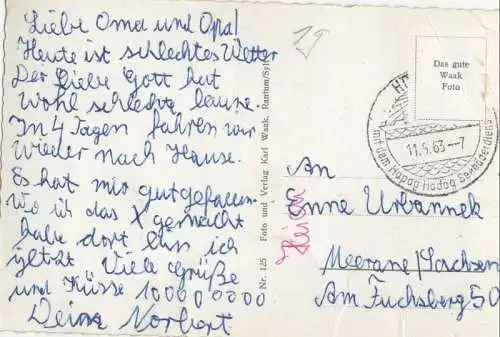 Liebe Oma und Opa!
Heute ist schlechtes Wetter
Der Liebe Gott hat
wohl schlechte laune.
In 4 Tagen fahren wir
wieder nach Hause.
Es hat mir gut gefallen.
wo ich das X gemacht
habe dort bin ich
jetzt Viele Grüße
und Küsse 100000000
Deine Norbert
Nr. 125 Foto und Verlag Karl Waak, Rantum/Sylt
Das gute
Waak
Foto
11.5.63--7
mit dem
An
Urbannek
Meerane/Sachsen
Am Fuchsberg 50